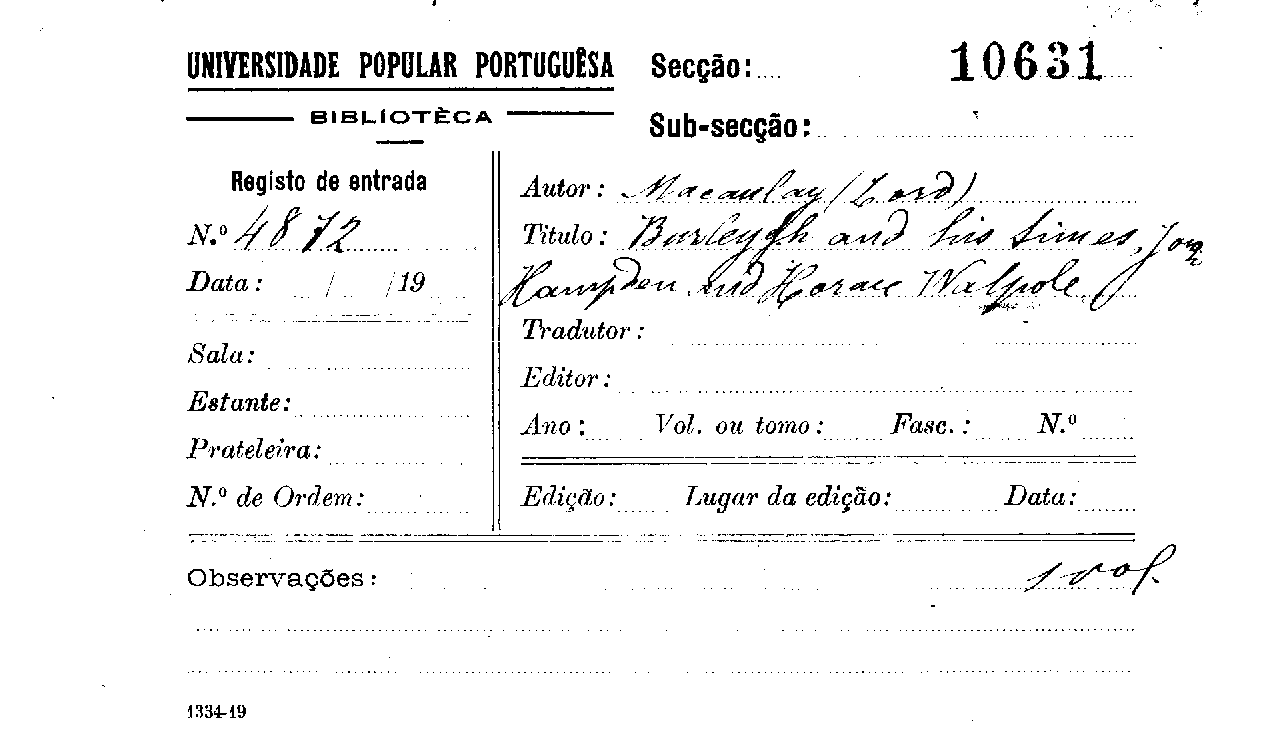 UNIVERSIDADE POPULAR PORTUGUÊSA
BIBLÍOTÈCA
Secção: 10631
Sub-secção:
Registo de entrada
N.º 4872
Data: / /19
Sala:
Estante:
Prateleira:
N.º de Ordem:
Autor: Macaulay (Lord)
Titulo: Burleygh and his times,
Hampden and Horace Walpole
Tradutor:
Editor:
Ano: Vol. ou tomo: Fasc.: N.º
Edição: Lugar da edição: Data:
Observações: 1 vol.
1334-19